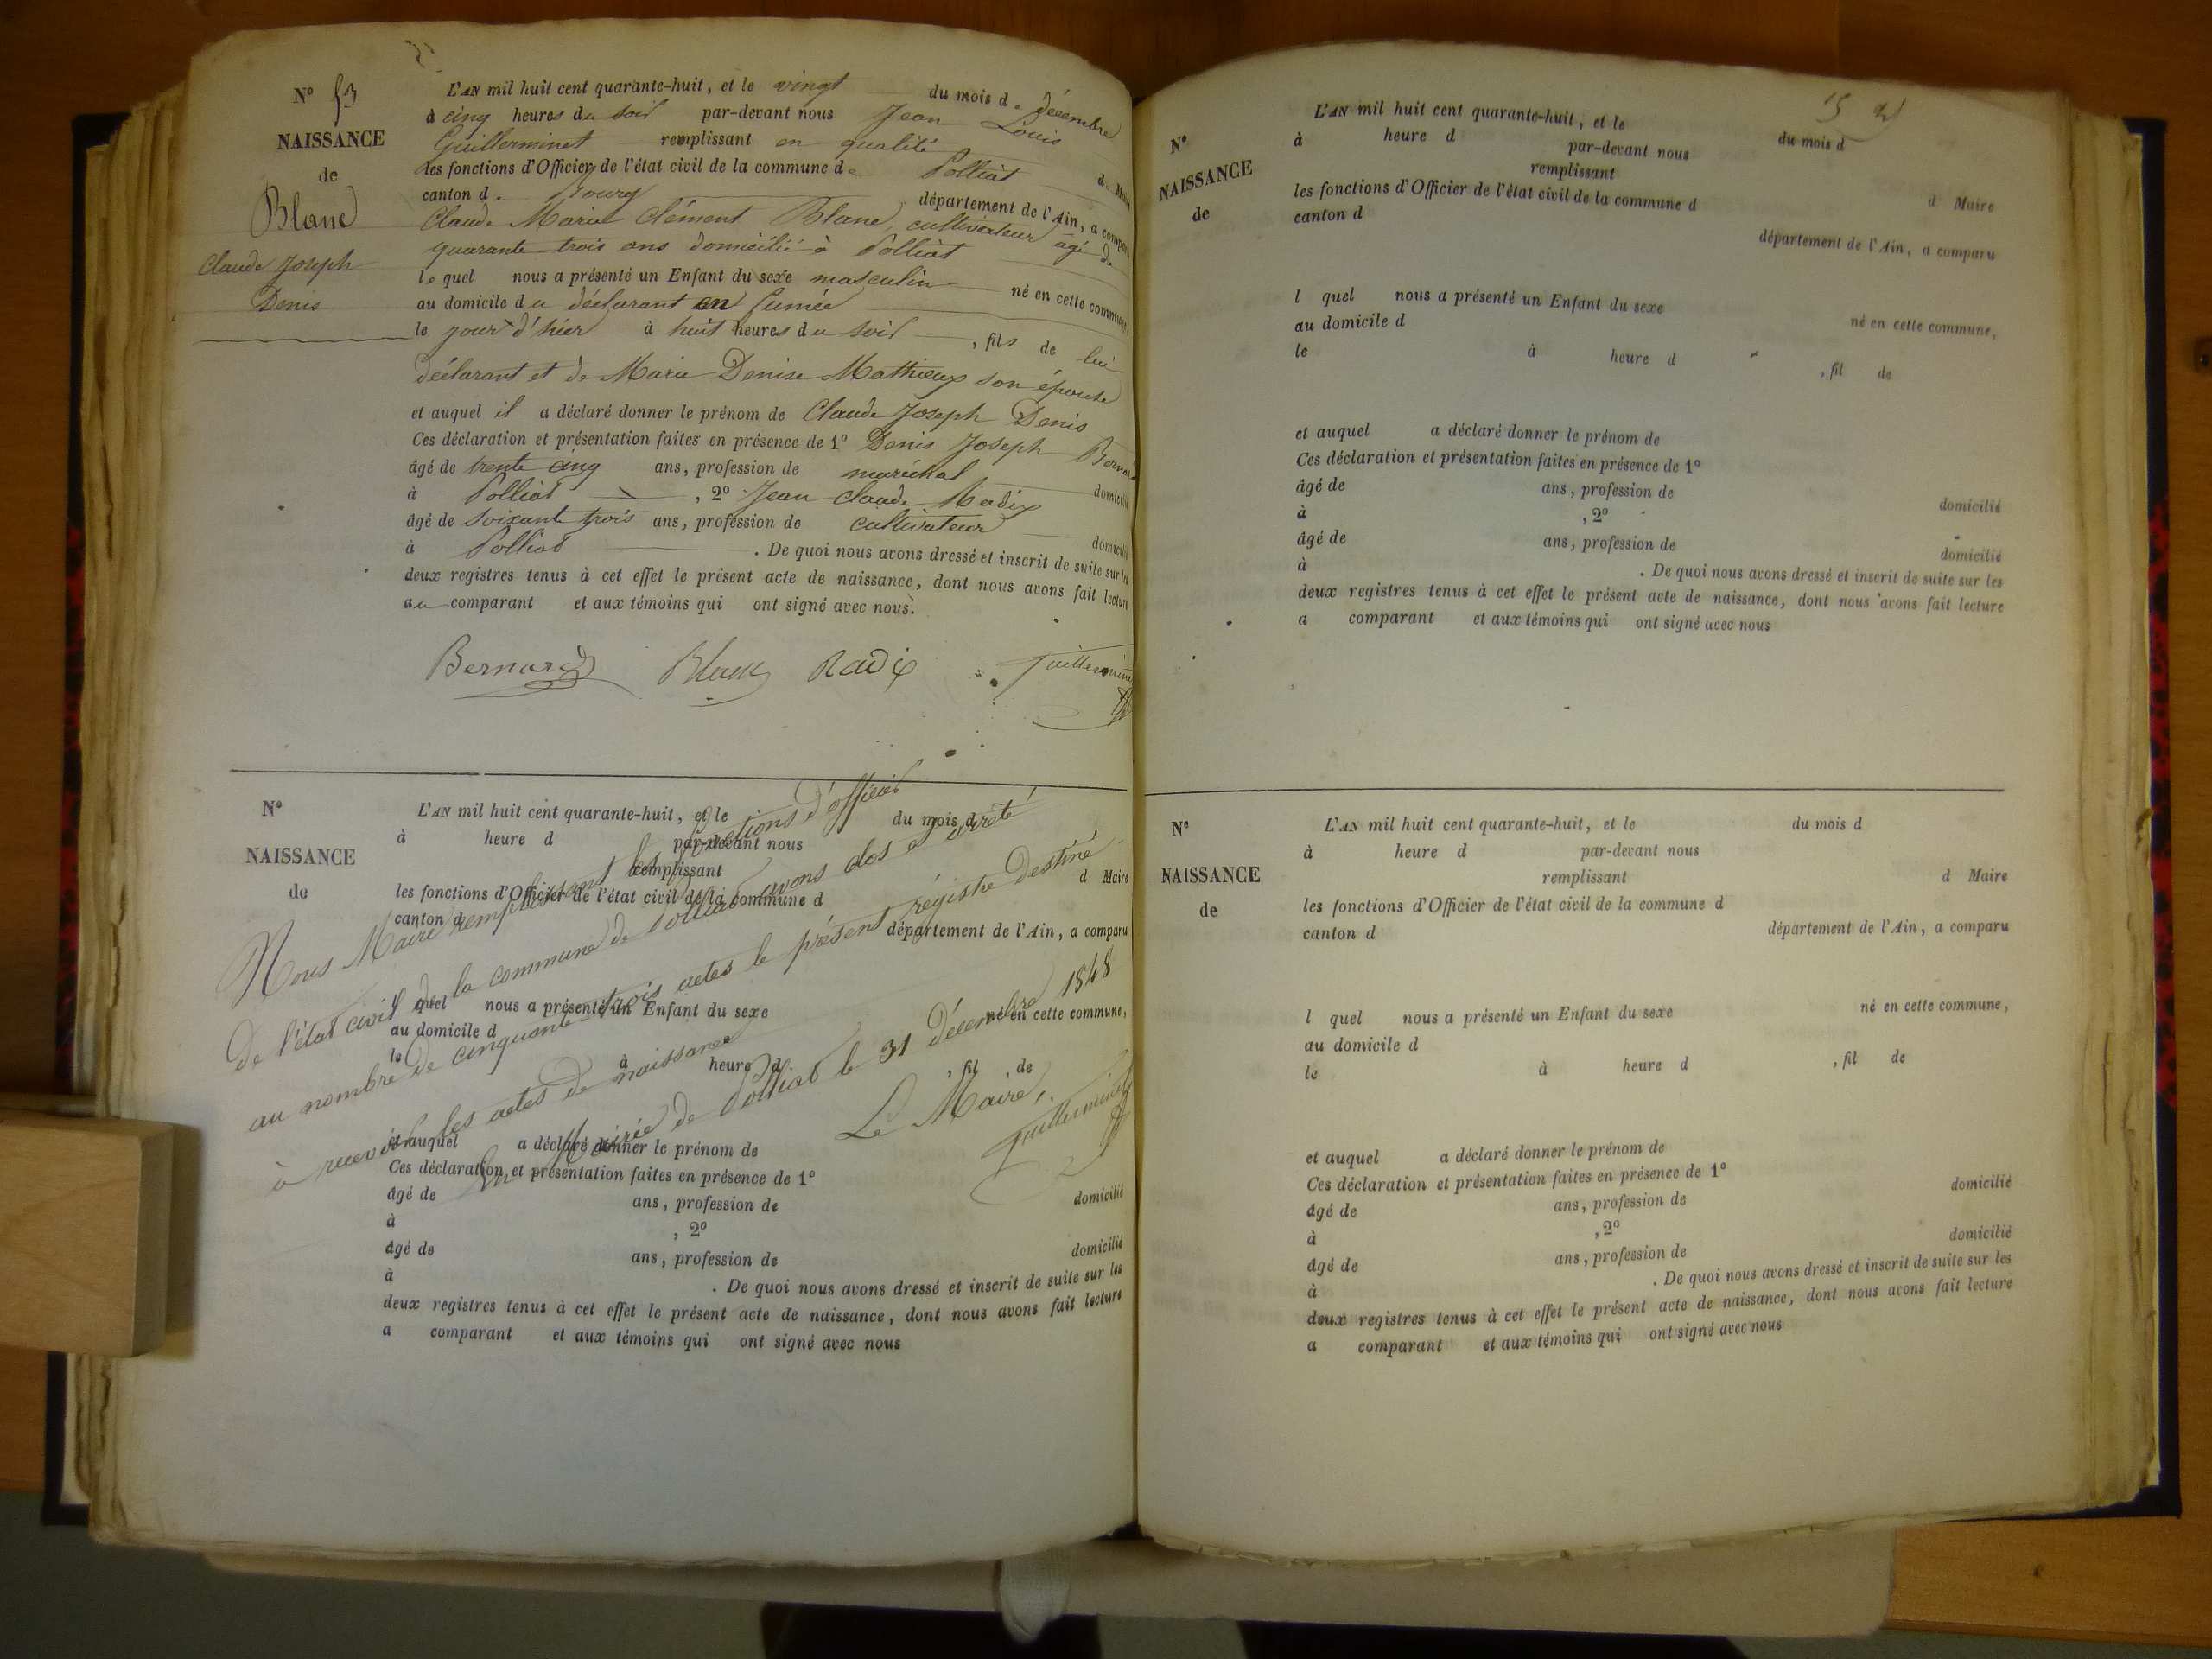 N° 53
NAISSANCE
de
Blanc
Claude Joseph
Denis
L'AN mil huit cent quarante-huit, et le vingt du mois de décembre
à cinq heures du soir par-devant nous Jean Louis
Guillerminet remplissant en qualité de Maire
les fonctions d'Officier de l'état civil de la commune de Polliat
canton de Bourg département de l'Ain, a comparu
Claude Marie Clément Blanc, cultivateur âgé de
quarante trois ans domicilié à Polliat
lequel nous a présenté un Enfant du sexe masculin né en cette commune,
au domicile du déclarant en
le jour d'hier à huit heures du soir, fils de lui
déclarant et de Marie Denise Mathieux son épouse
et auquel il a déclaré donner le prénom de Claude Joseph Denis
Ces déclaration et présentation faites en présence de 1° Denis Joseph Bernard
âgé de trente cinq ans, profession de maréchal domicilié
à Polliat, 2° Jean Claude Radix
âgé de soixante trois ans, profession de cultivateur domicilié
à Polliat. De quoi nous avons dressé et inscrit de suite sur les
deux registres tenus à cet effet le présent acte de naissance, dont nous avons fait lecture
au comparant et aux témoins qui ont signé avec nous.
Bernard Blanc Radix Guillerminet
N°
NAISSANCE
de
L'AN mil huit cent quarante-huit, et le du mois d
à heure d par-devant nous
remplissant d Maire
les fonctions d'Officier de l'état civil de la commune d
canton d département de l'Ain, a comparu
l quel nous a présenté un Enfant du sexe né en cette commune,
au domicile d
le à heure d , fil de
et auquel a déclaré donner le prénom de
Ces déclaration et présentation faites en présence de 1°
âgé de ans, profession de domicilié
à , 2°
âgé de ans, profession de domicilié
à . De quoi nous avons dressé et inscrit de suite sur les
deux registres tenus à cet effet le présent acte de naissance, dont nous avons fait lecture
a comparant et aux témoins qui ont signé avec nous
Nous Maire remplissant les fonctions d'officier
de l'état civil de la commune de Polliat avons clos et arrêté
au nombre de cinquante-trois actes le présent régistre destiné
à recevoir les actes de naissance
En Mairie de Polliat le 31 décembre 1848
Le Maire,
Guillerminet
N°
NAISSANCE
de
L'AN mil huit cent quarante-huit, et le du mois d
à heure d par-devant nous
remplissant d Maire
les fonctions d'Officier de l'état civil de la commune d
canton d département de l'Ain, a comparu
l quel nous a présenté un Enfant du sexe né en cette commune,
au domicile d
le à heure d , fil de
et auquel a déclaré donner le prénom de
Ces déclaration et présentation faites en présence de 1°
âgé de ans, profession de domicilié
à , 2°
âgé de ans, profession de domicilié
à . De quoi nous avons dressé et inscrit de suite sur les
deux registres tenus à cet effet le présent acte de naissance, dont nous avons fait lecture
a comparant et aux témoins qui ont signé avec nous
N°
NAISSANCE
de
L'AN mil huit cent quarante-huit, et le du mois d
à heure d par-devant nous
remplissant d Maire
les fonctions d'Officier de l'état civil de la commune d
canton d département de l'Ain, a comparu
l quel nous a présenté un Enfant du sexe né en cette commune,
au domicile d
le à heure d , fil de
et auquel a déclaré donner le prénom de
Ces déclaration et présentation faites en présence de 1°
âgé de ans, profession de domicilié
à , 2°
âgé de ans, profession de domicilié
à . De quoi nous avons dressé et inscrit de suite sur les
deux registres tenus à cet effet le présent acte de naissance, dont nous avons fait lecture
a comparant et aux témoins qui ont signé avec nous